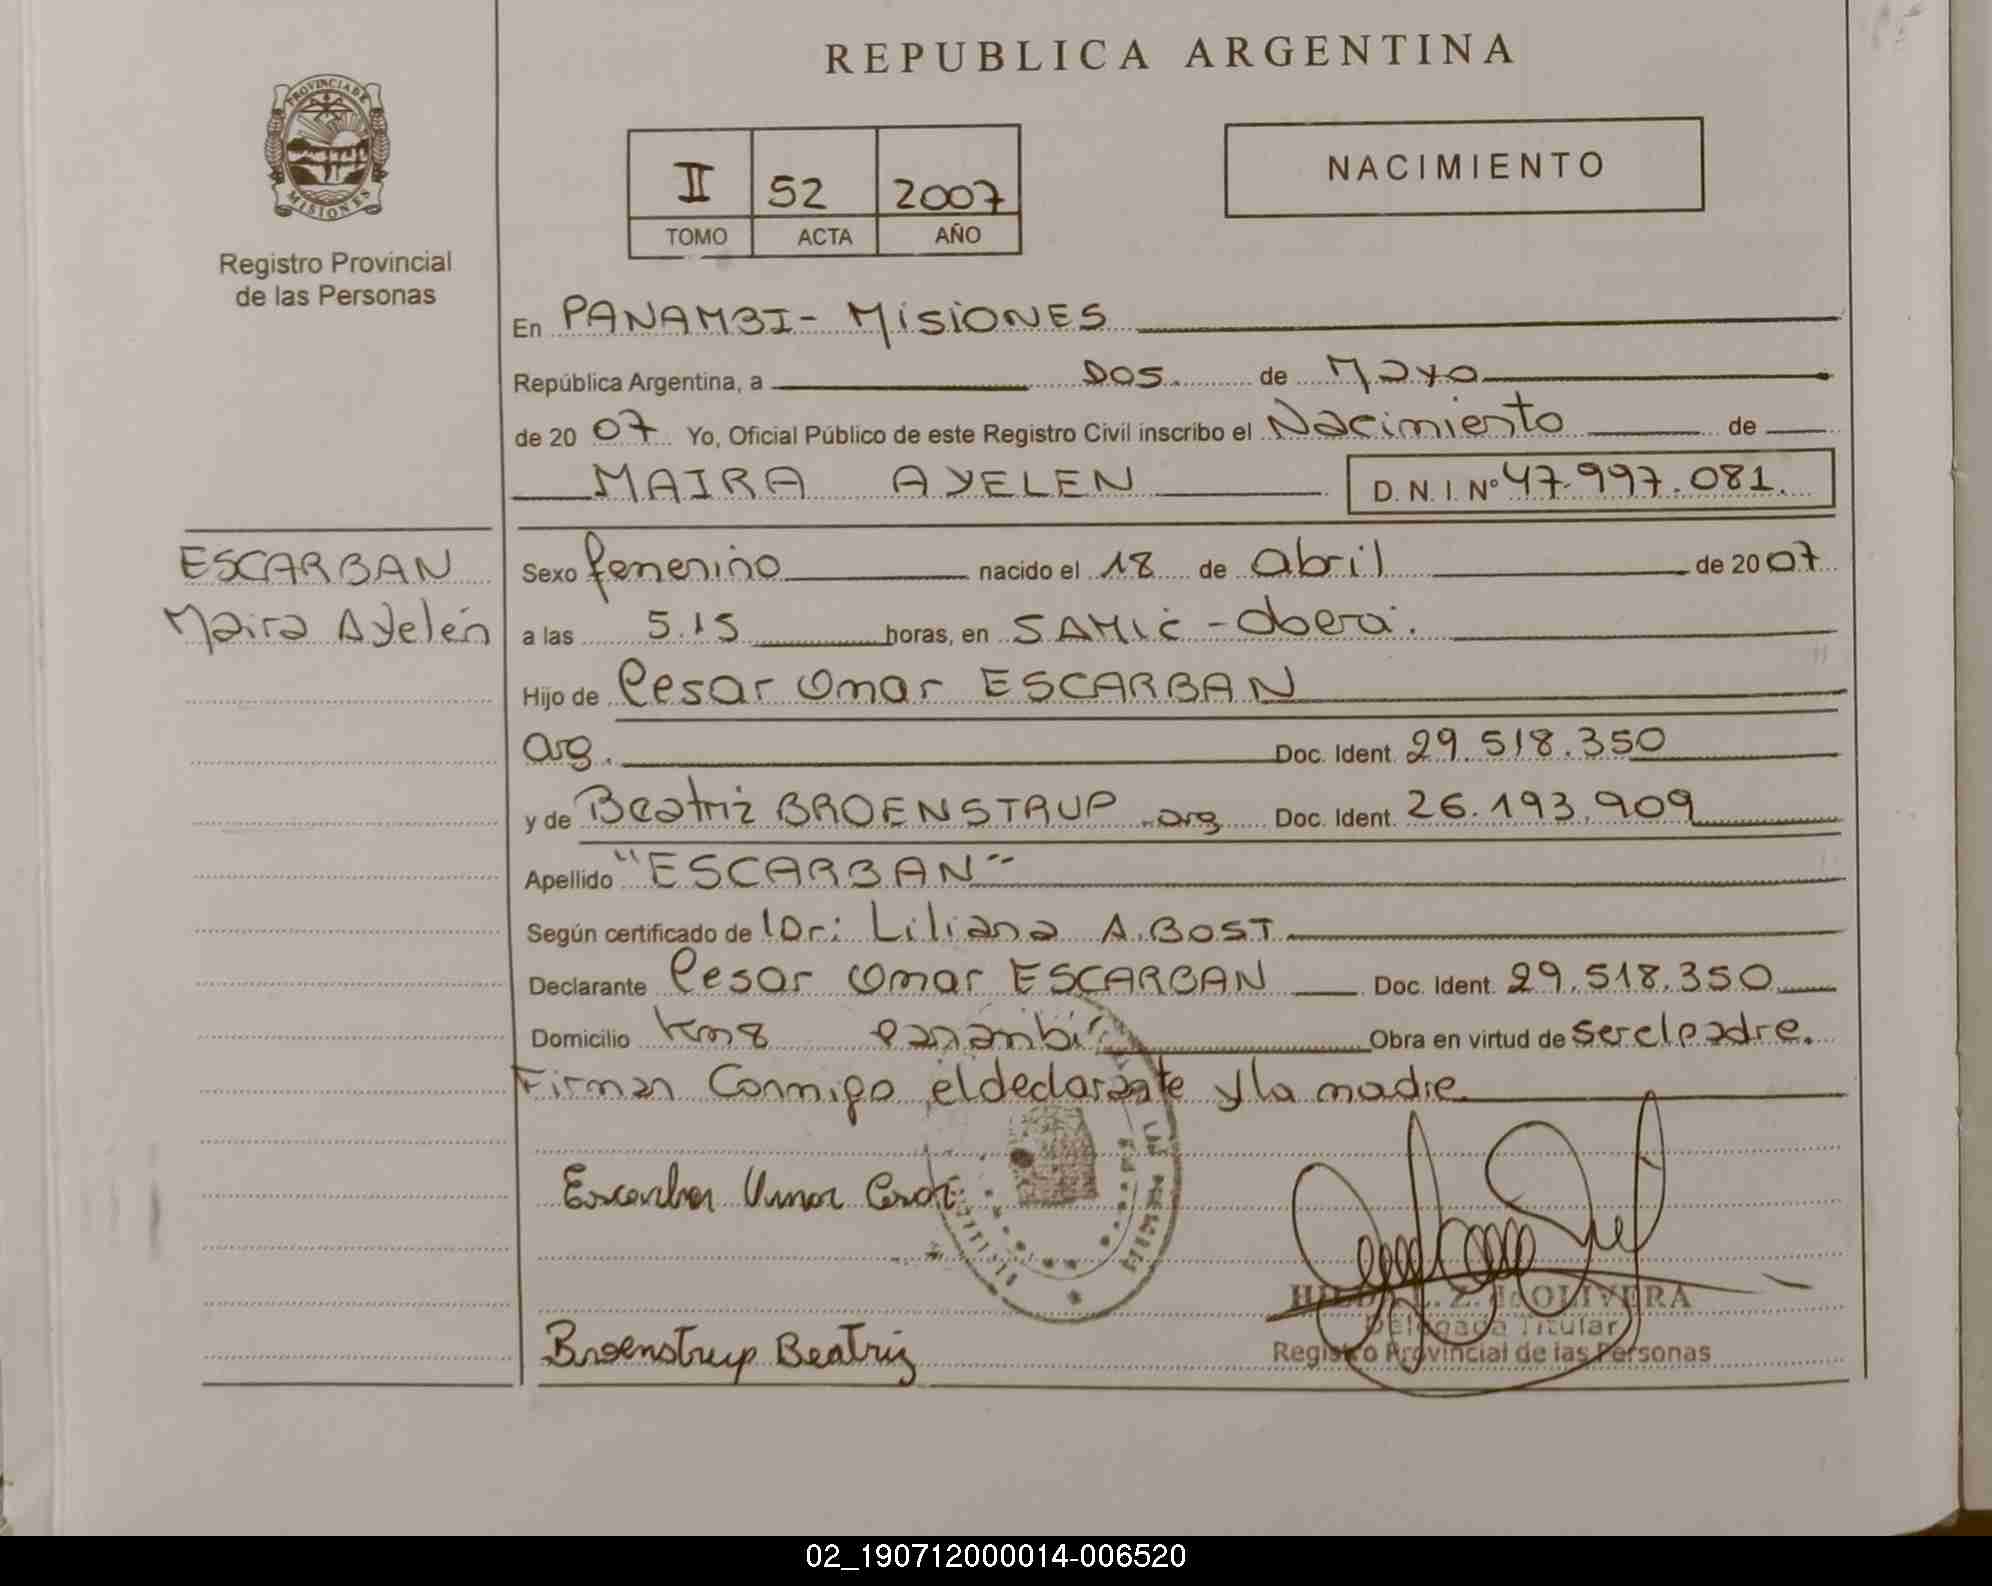 REPUBLICA ARGENTINA
PROVINCIA DE
MISIONES
Registro Provincial
de las Personas
II 52 2007
TOMO ACTA AÑO
NACIMIENTO
En PANAMBI - MISIONES
República Argentina, a Dos de Mayo
de 20 07 Yo, Oficial Público de este Registro Civil inscribo el Nacimiento de
MAIRA AYELEN D.N.I. Nº 47.997.081.
ESCARBAN
Maira Ayelén
Sexo femenino nacido el 18 de Abril de 20 07
a las 5.15 horas, en SAMIC - Obera.
Hijo de Cesar Omar ESCARBAN
arg. Doc. Ident. 29.518.350
y de Beatriz BROENSTRUP arg Doc. Ident. 26.193.909
Apellido "ESCARBAN"
Según certificado de Dr: Liliana A. BOST
Declarante Cesar Omar ESCARBAN Doc. Ident. 29.518.350
Domicilio Km 8 Panambí Obra en virtud de ser el padre.
Firman Conmigo el declarante y la madre
Escarban Omar Cesar
HILDA L. Z. de OLIVERA
Delegada Titular
Registro Provincial de las Personas
Broenstrup Beatriz
02_190712000014-006520